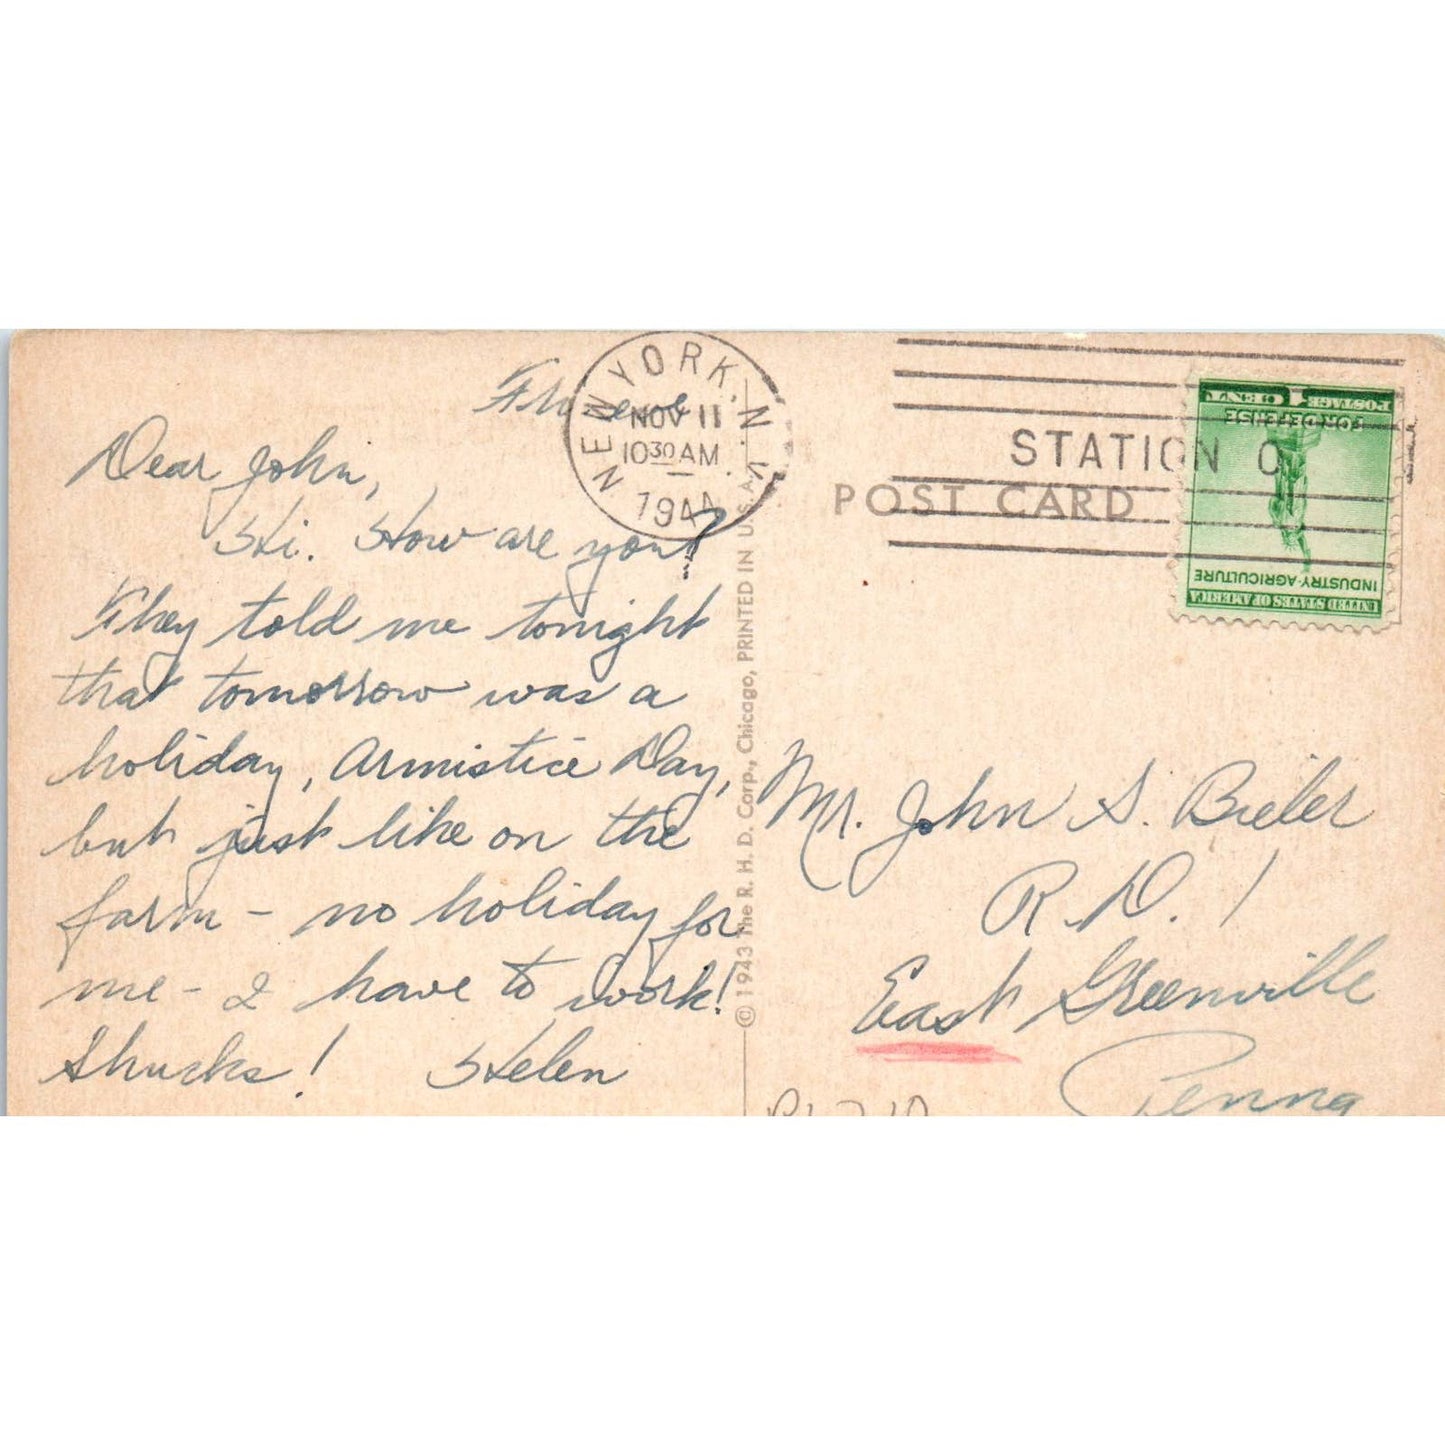 Dear John,
Hi. How are you?
They told me tonight
that tomorrow was a
holiday, Armistice Day,
but just like on the
farm - no holiday for
me - I have to work!
Shucks! Helen
NEW YORK, N.Y.
NOV 11
10 30 AM
1944
STATION O
POST CARD
1 CENT POSTAGE
FOR DEFENSE
INDUSTRY-AGRICULTURE
UNITED STATES OF AMERICA
© 1943 The R. H. D. Corp., Chicago, PRINTED IN U.S.A.
Mr. John S. Bieler
R.D. 1
East Greenville
Penna